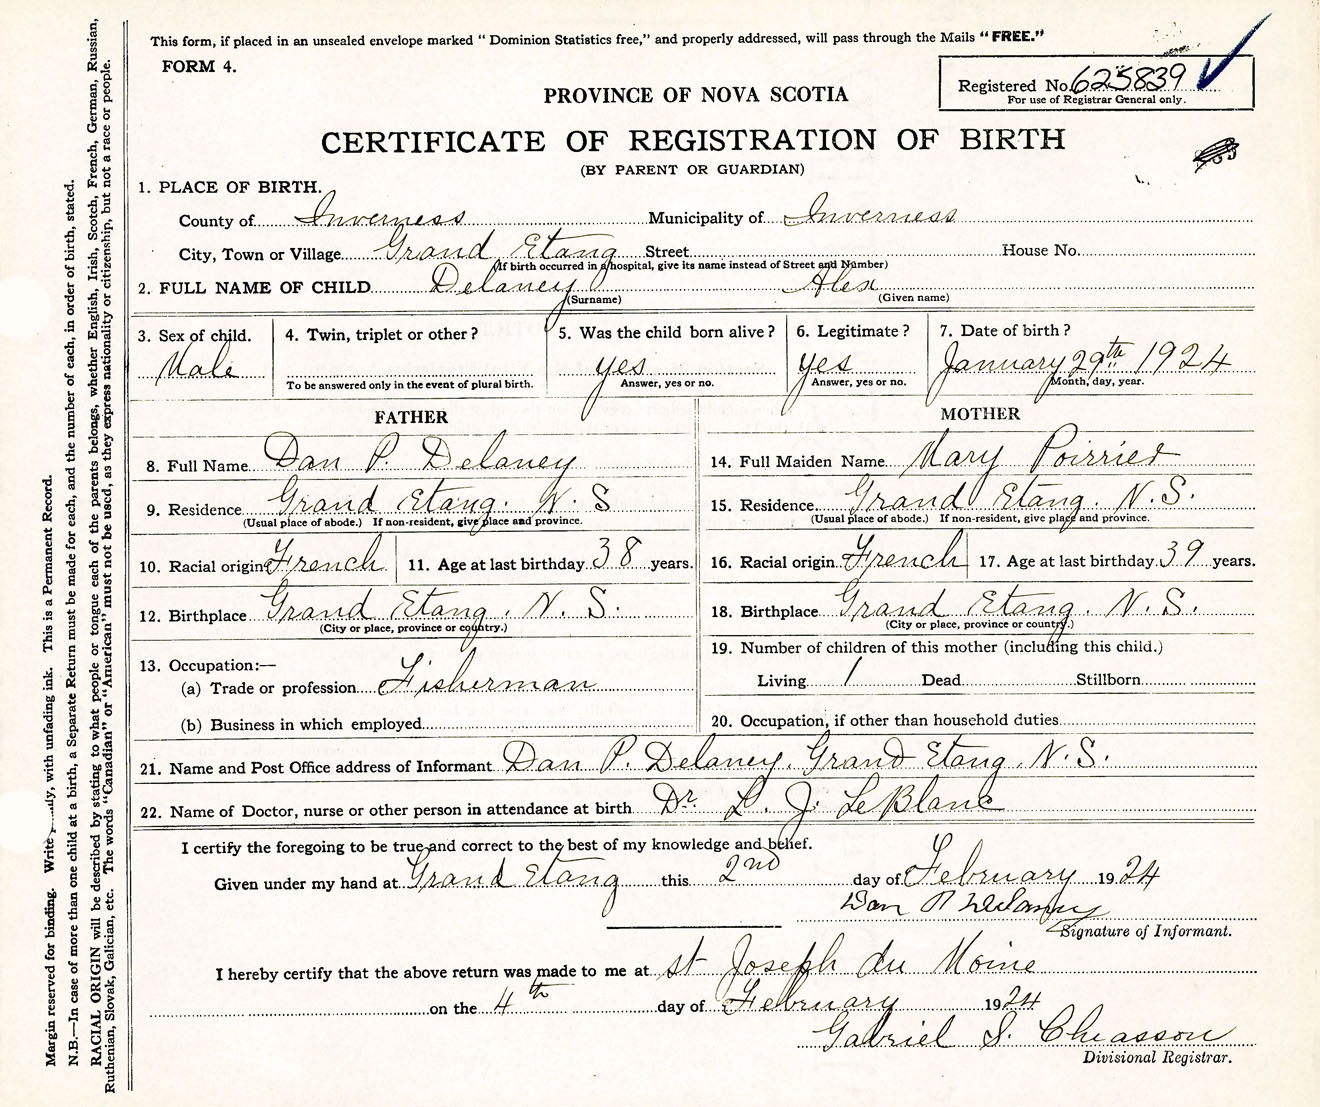 This form, if placed in an unsealed envelope marked "Dominion Statistics free," and properly addressed, will pass through the Mails "FREE."
FORM 4.
Registered No. 625839
For use of Registrar General only.
PROVINCE OF NOVA SCOTIA
CERTIFICATE OF REGISTRATION OF BIRTH
(BY PARENT OR GUARDIAN)
1. PLACE OF BIRTH.
County of Inverness Municipality of Inverness
City, Town or Village Grand Etang Street House No.
(If birth occurred in a hospital, give its name instead of Street and Number)
2. FULL NAME OF CHILD Delaney Alex
(Surname) (Given name)
3. Sex of child. 4. Twin, triplet or other? 5. Was the child born alive? 6. Legitimate? 7. Date of birth?
Male yes yes January 29th 1924
To be answered only in the event of plural birth. Answer, yes or no. Answer, yes or no. Month, day, year.
FATHER MOTHER
8. Full Name Dan P. Delaney 14. Full Maiden Name Mary Poirrier
9. Residence Grand Etang. N. S 15. Residence Grand Etang. N. S.
(Usual place of abode.) If non-resident, give place and province. (Usual place of abode.) If non-resident, give place and province.
10. Racial origin French 11. Age at last birthday 38 years. 16. Racial origin French 17. Age at last birthday 39 years.
12. Birthplace Grand Etang. N. S. 18. Birthplace Grand Etang. N. S.
(City or place, province or country.) (City or place, province or country.)
13. Occupation:— 19. Number of children of this mother (including this child.)
(a) Trade or profession Fisherman Living 1 Dead Stillborn
(b) Business in which employed 20. Occupation, if other than household duties
21. Name and Post Office address of Informant Dan P. Delaney. Grand Etang. N. S.
22. Name of Doctor, nurse or other person in attendance at birth Dr. L. J. LeBlanc
I certify the foregoing to be true and correct to the best of my knowledge and belief.
Given under my hand at Grand Etang this 2nd day of February 1924
Dan P Delaney
Signature of Informant.
I hereby certify that the above return was made to me at st Joseph du Moine
on the 4th day of February 1924
Gabriel S. Cheasson
Divisional Registrar.
Margin reserved for binding. Write ly, with unfading ink. This is a Permanent Record.
N.B.—In case of more than one child at a birth, a Separate Return must be made for each, and the number of each, in order of birth, stated.
RACIAL ORIGIN will be described by stating to what people or tongue each of the parents belongs, whether English, Irish, Scotch, French, German, Russian,
Ruthenian, Slovak, Galician, etc. The words "Canadian" or "American" must not be used, as they express nationality or citizenship, but not a race or people.